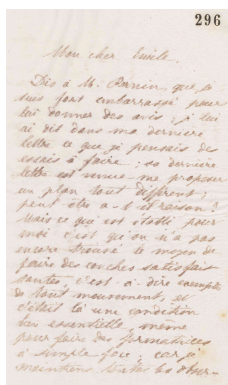 296
Mon cher Emile,
Dis à M. que je
suis fort embarrassé pour
lui donner des avis; je lui
ai dit dans ma dernière
lettre ce que je pensais des
essais à faire; sa dernière
lettre est venue me proposer
un plan tout différent;
peut être a-t-il raison?
Mais ce qui est établi pour
moi c'est qu'on n'a pas
encore trouvé le moyen de
faire des couches satisfai
santes, c'est à dire exemptes
de tout mouvement, et
c'était là une condition
bien essentielle, même
pour faire des formatrices
à simple face, car je
maintiens toutes les obser-